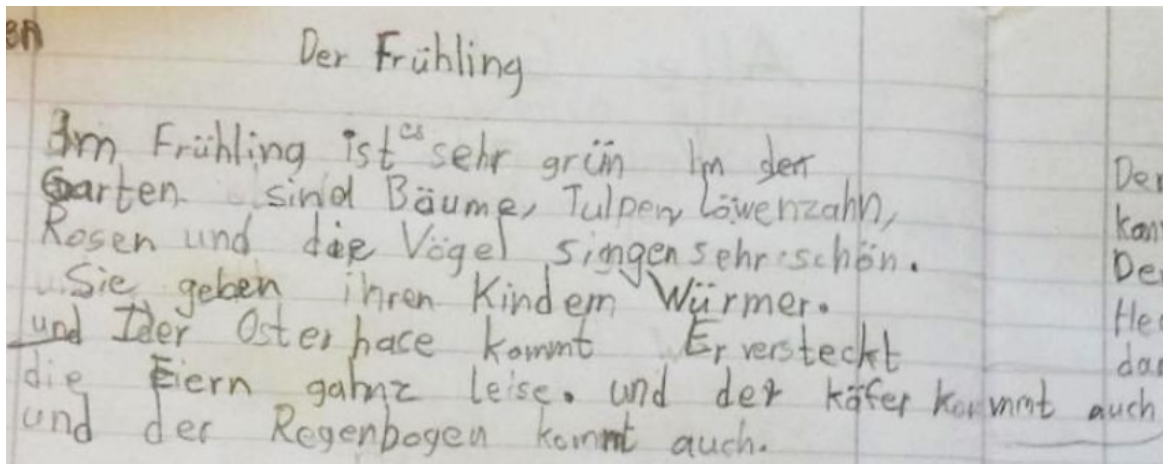 en
Der Frühling
Im Frühling ist es sehr grün Im den
Garten sind Bäume, Tulpen, Löwenzahn,
Rosen und die Vögel singen sehr schön.
Sie geben ihren Kindern Würmer.
und Der Osterhace kommt Er versteckt
die Eiern gahnz leise. und der käfer kommt auch
und der Regenbogen kommt auch.
Der
De